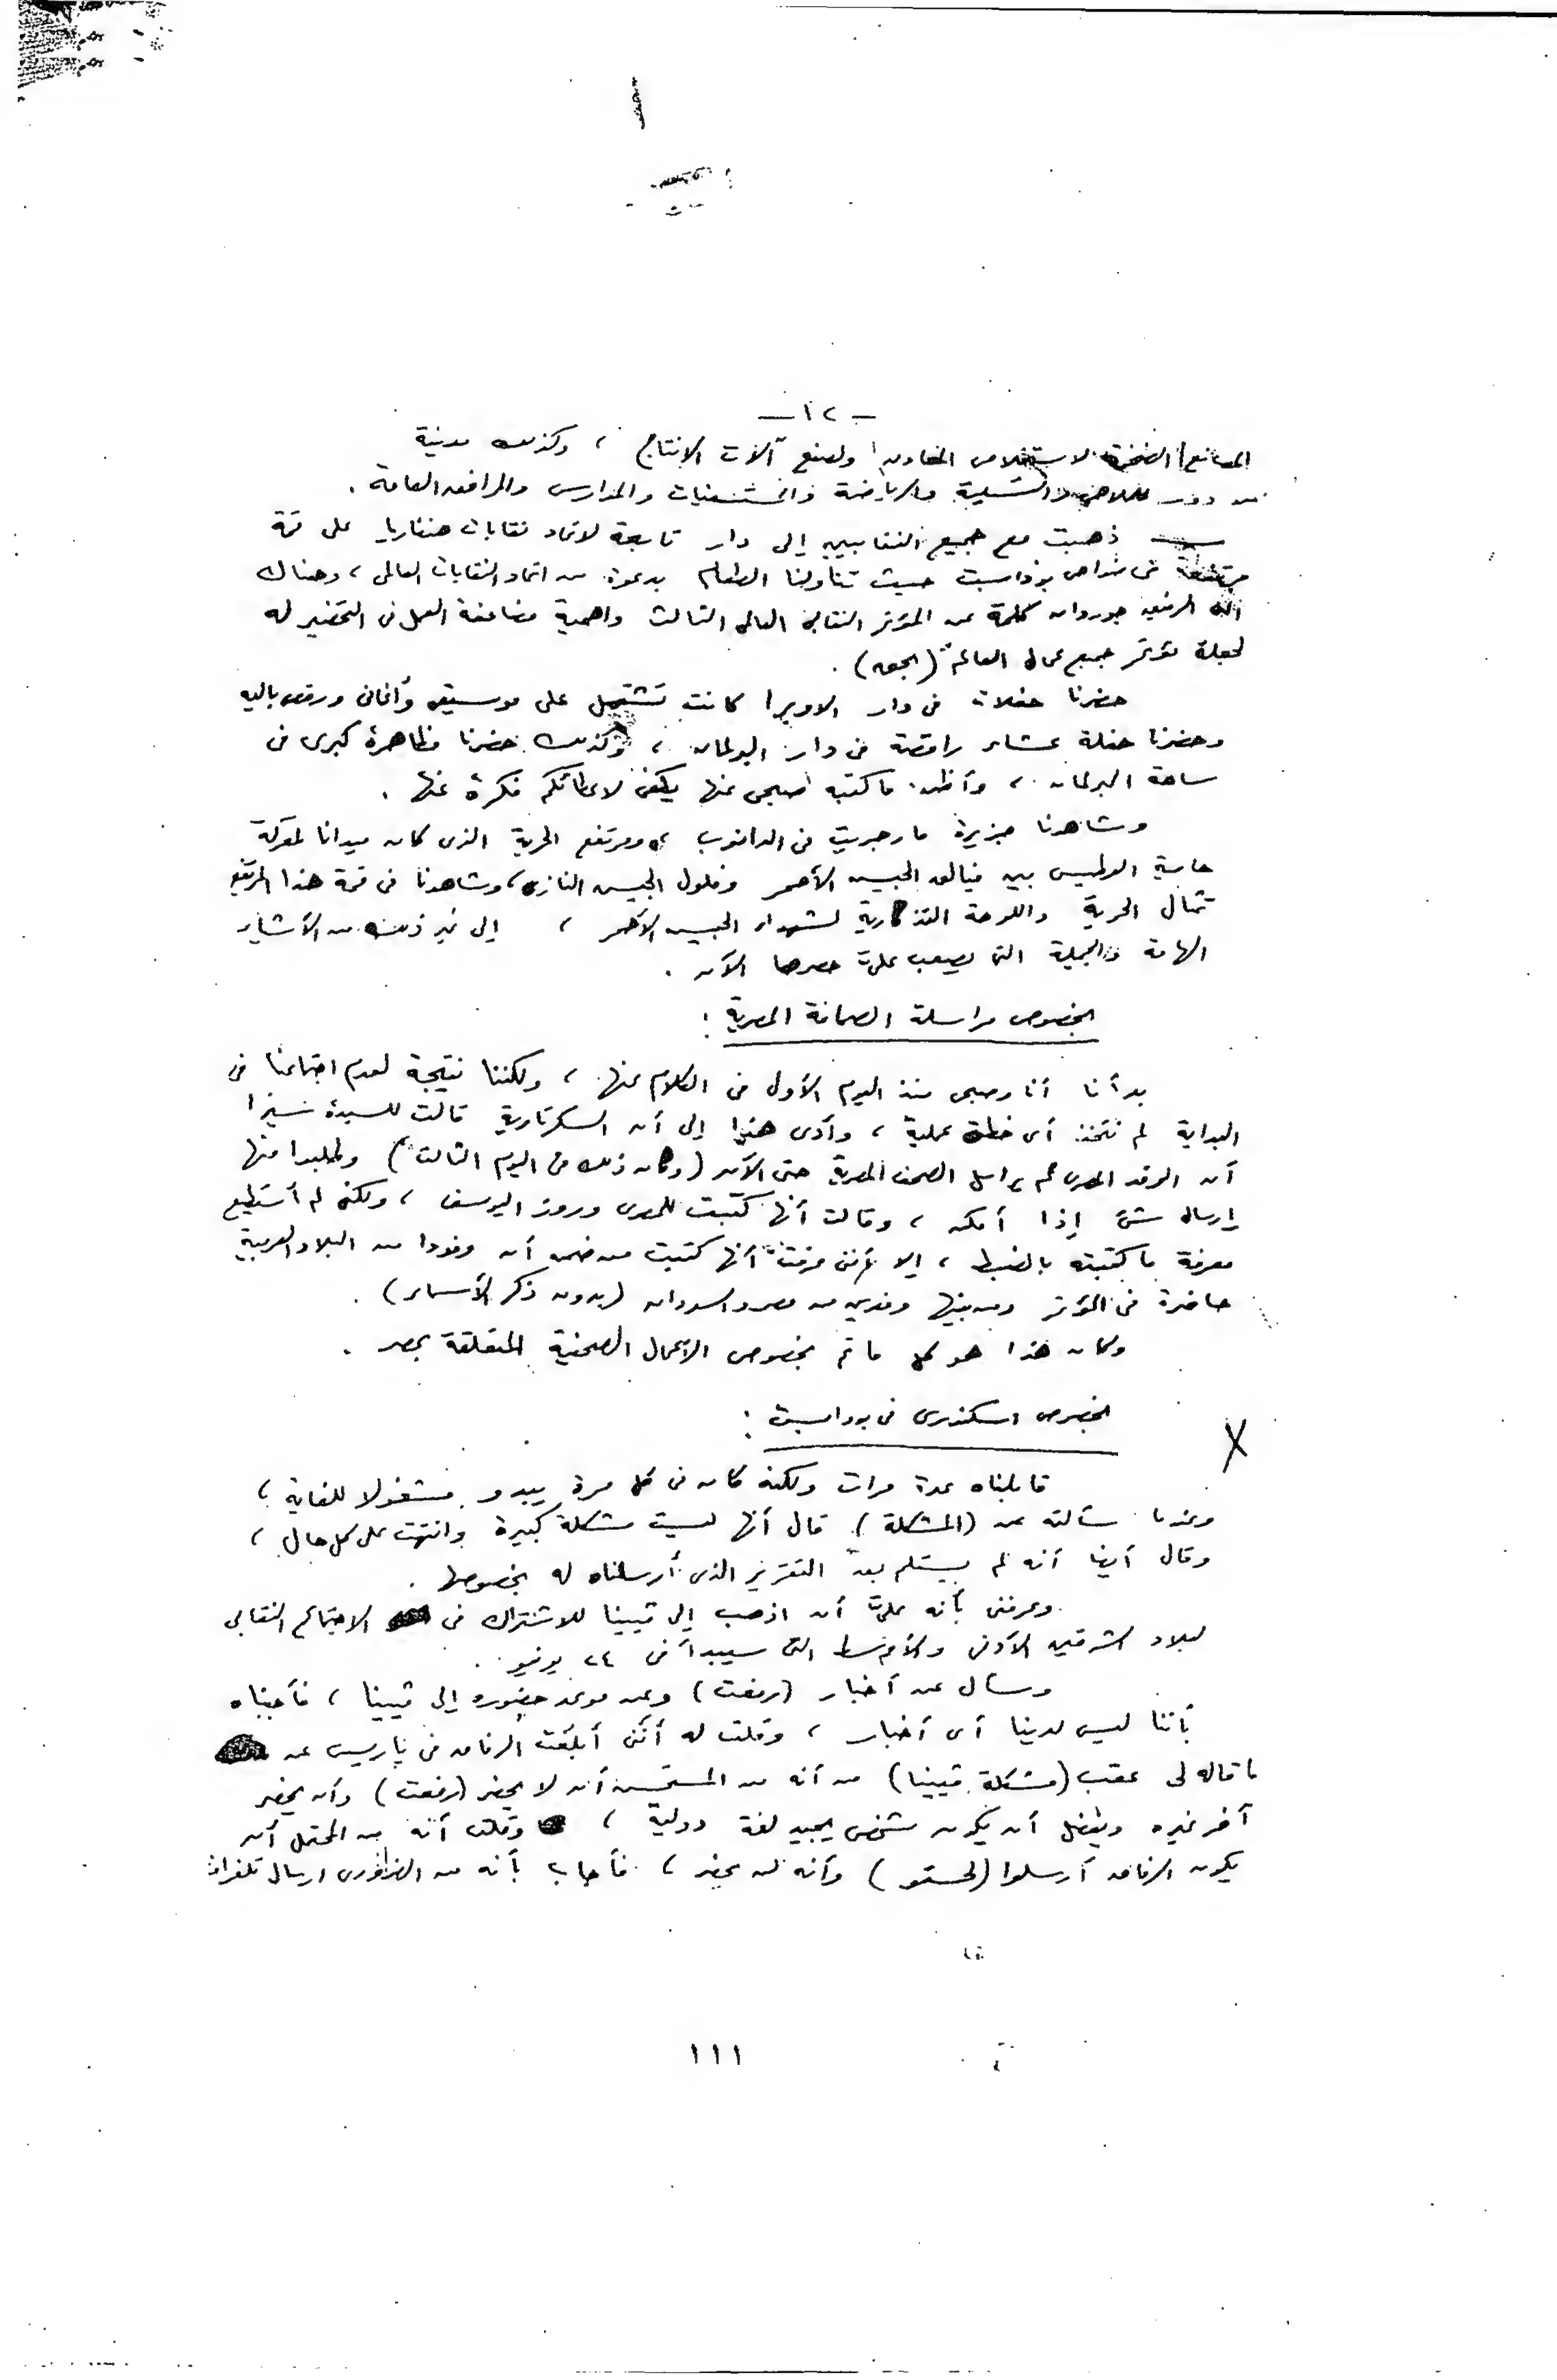 - ١٢ -
المصانع الضخمة لاستخلاص المعادن ولصنع آلات الانتاج ، وكذلك مدينة
دور للملاهى والتسلية والرياضة والمستشفيات والمدارس والمرافق العامة .
ذهبت مع جميع النقابيين إلى دار تابعة لاتحاد نقابات هنغاريا على قمة
مرتفعة فى ضواحى بودابست حيث تناولنا الطعام بدعوة من اتحاد النقابات العالمى ، وهناك
ألقى الرفيق جوردان كلمة عن المؤتمر النقابى العالمى الثالث واهمية مضاعفة العمل فى التحضير له
لجعله مؤتمر جميع عمال العالم" (الجمعة) .
حضرنا حفلات فى دار الاوبرا كانت تشتمل على موسيقى وأغانى ورقص باليه
وحضرنا حفلة عشاء راقصة فى دار البرلمان ، وكذلك حضرنا مظاهرة كبرى فى
ساحة البرلمان ، وأظن ما كتبه صبحى عنها يكفى لاعطائكم فكرة عنها .
وشاهدنا جزيرة مارجريت فى الدانوب ، ومرتفع الحرية الذى كان ميدانا لمعركة
حامية الوطيس بين فيالق الجيش الأحمر وفلول الجيش النازى ، وشاهدنا فى قمة هذا المرتفع
تمثال الحرية واللوحة التذكارية لشهداء الجيش الأحمر ، إلى غير ذلك من الأشياء
الهامة والجميلة التى يصعب علىّ حصرها الآن .
بخصوص مراسلة الصحافة المصرية :
بدأنا أنا وصبحى منذ اليوم الأول فى الكلام عنها ، ولكننا نتيجة لعدم اجتماعنا فى
البداية لم نتخذ أى خطة عملية ، وأدى هذا إلى أن السكرتارية قالت للسيدة سيزا
أن الوفد المصرى لم يراسل الصحف المصرية حتى الآن (وكان ذلك فى اليوم الثالث) وطلبوا منها
إرسال شئ إذا أمكن ، وقالت أنها كتبت للمصرى وروز اليوسف ، ولكنى لم أستطيع
معرفة ما كتبته بالضبط ، إلا أننى عرفت أنها كتبت من ضمنه أن وفودا من البلاد العربية
حاضرة فى المؤتمر ومن بينها وفدين من مصر والسودان (بدون ذكر الأسماء) .
وكان هذا هو كل ما تم بخصوص الاعمال الصحفية المتعلقة بمصر .
بخصوص اسكندرى فى بودابست :
X
قابلناه عدة مرات ولكنه كان فى كل مرة يبدو مشغولا للغاية ،
وعندما سألته عن (المشكلة) قال أنها ليست مشكلة كبيرة وانتهت على كل حال ،
وقال أيضا أنه لم يستلم بعد التقرير الذى أرسلناه له بخصوصها .
وعرفنى بأنه علىّ أن اذهب إلى ڤيينا للاشتراك فى الاجتماع النقابى
لبلاد الشرقين الأدنى والأوسط التى سيبدأ فى ٢٤ يونيو .
وسأل عن أخبار (رفعت) وعن موعد حضوره إلى ڤيينا ، فأجبناه
بأننا ليس لدينا أى أخبار ، وقلت له أننى أبلغت الرفاق فى پاريس عن
ما قاله لى عقب (مشكلة ڤيينا) من أنه من المستحسن أن لا يحضر (رفعت) وأن يحضر
آخر غيره ويفضل أن يكون شخص يجيد لغة دولية ، وقلت أنه من المحتمل أن
يكون الرفاق أرسلوا وأنه لن يحضر ، فأجاب بأنه من الضرورى ارسال تلغراف
١١١